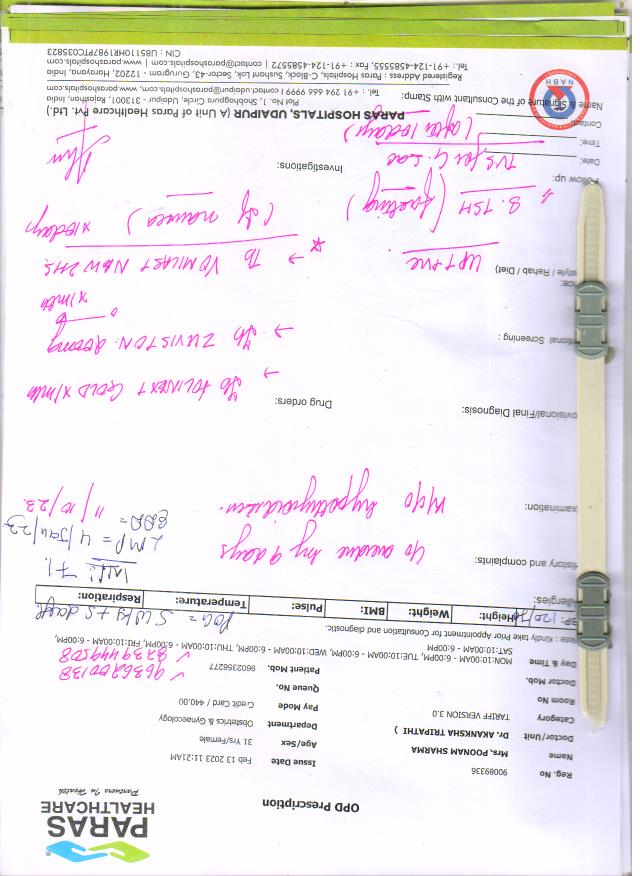 PARAS
HEALTHCARE
Partners In Health
OPD Prescription
Reg. No 90089336 Issue Date Feb 13 2023 11:21AM
Name Mrs. POONAM SHARMA Age/Sex 31 Yrs/Female
Doctor/Unit Dr. AKANKSHA TRIPATHI ) Department Obstetrics & Gynaecology
Category TARIFF VERSION 3.0 Pay Mode Credit / Card 440.00
Room No Queue No.
Doctor Mob. Patient Mob. 9602356277
Day & Time MON:10:00AM - 6:00PM, TUE:10:00AM - 6:00PM, WED:10:00AM - 6:00PM, THU:10:00AM - 6:00PM, FRI:10:00AM - 6:00PM,
SAT:10:00AM - 6:00PM
: Kindly take Prior Appointment for Consultation and diagnostic.
POG = 5 wks + 5 days
BP: 120/ Height: Weight: BMI: Pulse: Temperature: Respiration:
Allergies:
History and complaints:
c/o overdue by 9 days
LMP = 4/Jan/23
EDD = 11/10/23.
xamination:
k/c/o hypothyroidism.
ovisional/Final Diagnosis: Drug orders:
→ Tb FOLINEXT GOLD x 1mth
itional Screening :
→ Tb ZUVISTON
x 1mth
style / Rehab / Diet)
UPT +ve
→ Tb VOMILAST
x 10days
(if nausea)
Follow up: Investigations:
S. TSH (fasting)
TVS for G. Sac
(after 10 days)
Date:
Time:
Contact:
Name & Signature of the Consultant with Stamp:
NABH
PARAS HOSPITALS, UDAIPUR (A Unit of Paras Healthcare Pvt. Ltd.)
Plot No. 1, Shobhagpura Circle, Udaipur - 313001, Rajasthan, India
Tel.: +91 294 666 9999 | contact.udaipur@parashospitals.com, www.parashospitals.com
Registered Address : Paras Hospitals, C-Block, Sushant Lok, Sector-43, Gurugram - 12202, Haryana, India
Tel.: +91-124-4585555, Fax : +91-124-4585572 | contact@parashospitals.com | www.parashospitals.com
CIN : U85110HR1987PTC035823